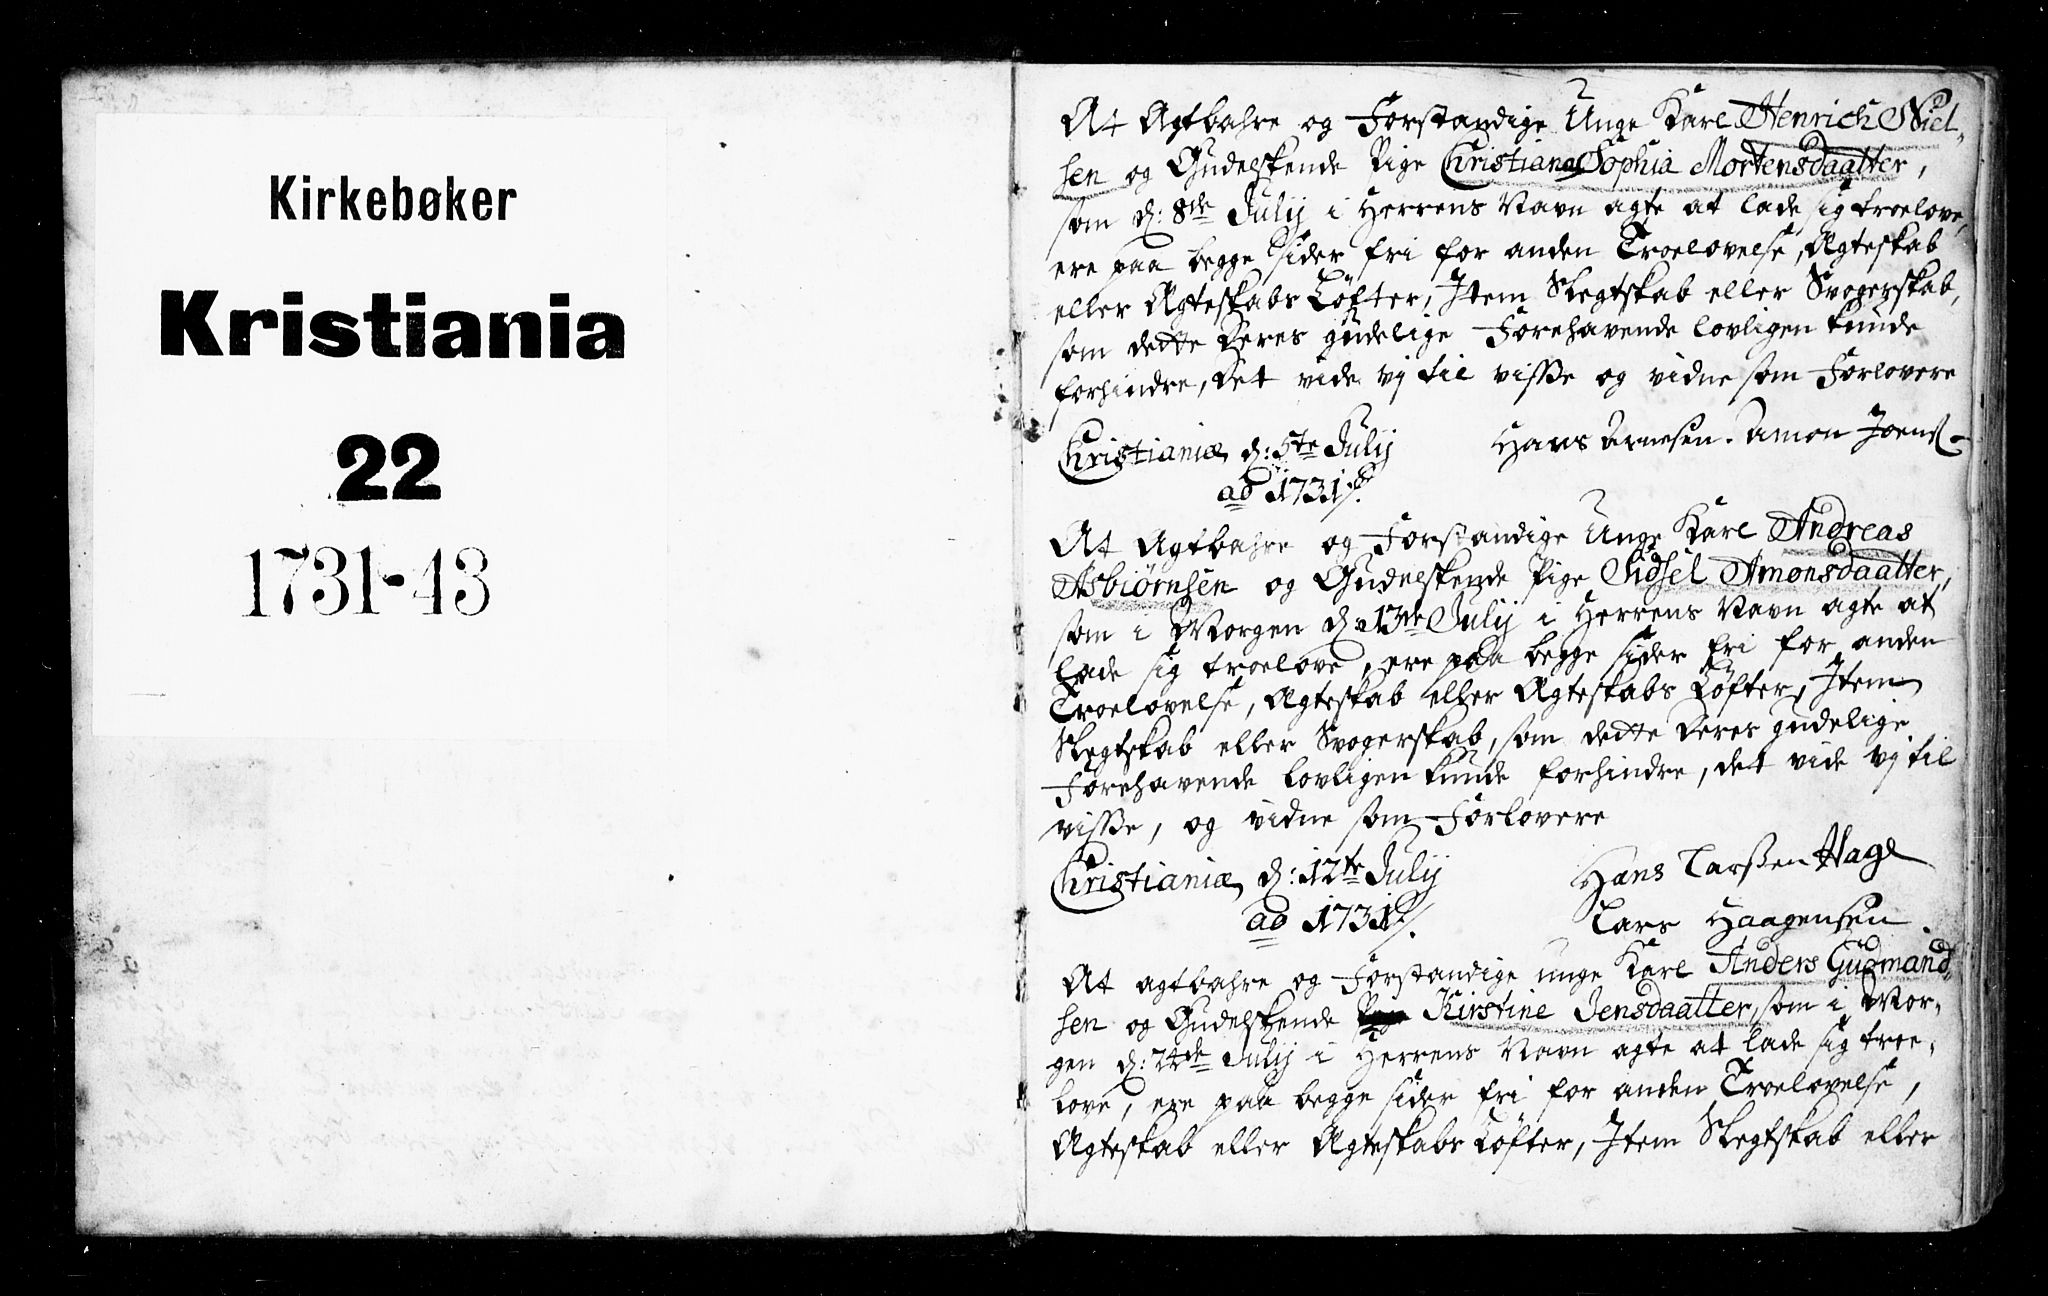 Kirkebøker
Kristiania
22
1731-43
At Agtbahre og Forstandige Unge Karl Henrich Niel-
sen og Gudelskende Pige Christiana Sophia Mortensdaatter,
som d: 8de Julij i Herrens Navn agte at lade sig troelove,
ere paa begge sider fri for anden Troelovelse, Ægteskab
eller Ægteskabs Løfter, Item Slegtskab eller Svogerskab,
som dette deres gudelige Forehavende lovligen kunde
forhindre, det vide vj til visse og vidne som Forlovere
Christianiæ d: 5te Julij
Hans Arnesen. Amon Joens
ao 1731/.
At Agtbahre og Forstandige Unge Karl Andreas
Asbiørnsen og Gudelskende Pige Sidsel Amonsdaatter,
som i Morgen d: 13de Julij i Herrens Navn agte at
lade sig troelove, ere paa begge sider fri for anden
Troelovelse, Ægteskab eller Ægteskabs Løfter, Item
Slegtskab eller Svogerskab, som dette deres gudelige
Forehavende lovligen kunde forhindre, det vide vj til
visse, og vidne som Forlovere
Christianiæ d: 12te Julij
Hans Larssen Hagl
ao 1731/.
Lars Haagensen.
At agtbahre og Forstandige unge Karl Anders Gudmand-
sen og Gudelskende Kirstine Jensdaatter, som i Mor-
gen d: 24de Julij i Herrens Navn agte at lade sig troe-
love, ere paa begge sider fri for anden Troelovelse,
Ægteskab eller Ægteskabs Løfter, Item Slegtskab eller